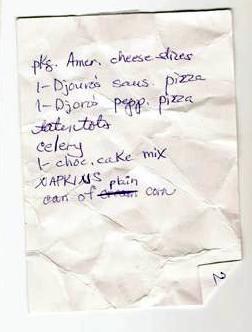 pkg. Amer. cheese slices
1- Djouro's saus. pizza
1- Djoro's pepp. pizza
tatertots
celery
1- choc. cake mix
NAPKINS
plain
can of cream corn
2